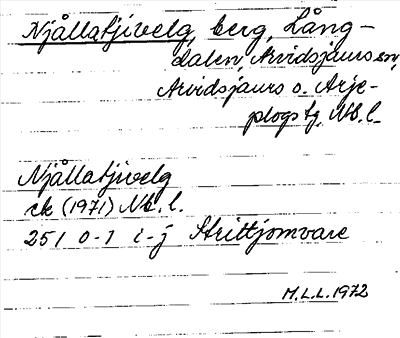 Njållatjivelg, berg, Lång-
dalen, Arvidsjaurs sn,
Arvidsjaurs o. Arje-
plogs tg. Nb. l.
Njållatjivelg
ek (1971) Nb. l.
251 0-1 i-j Strittjomvare
M.L.L. 1972